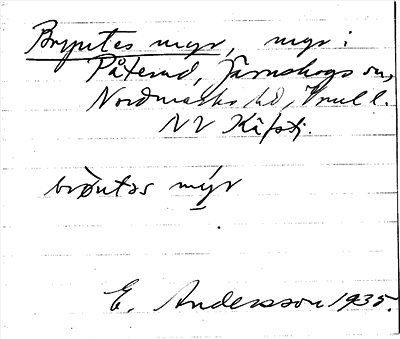 Bryntes myr, myr i
Påterud, Järnskogs sn,
Nordmarks hd, Vrml l.
NV
bröntəs mýr
E. Andersson 1935.